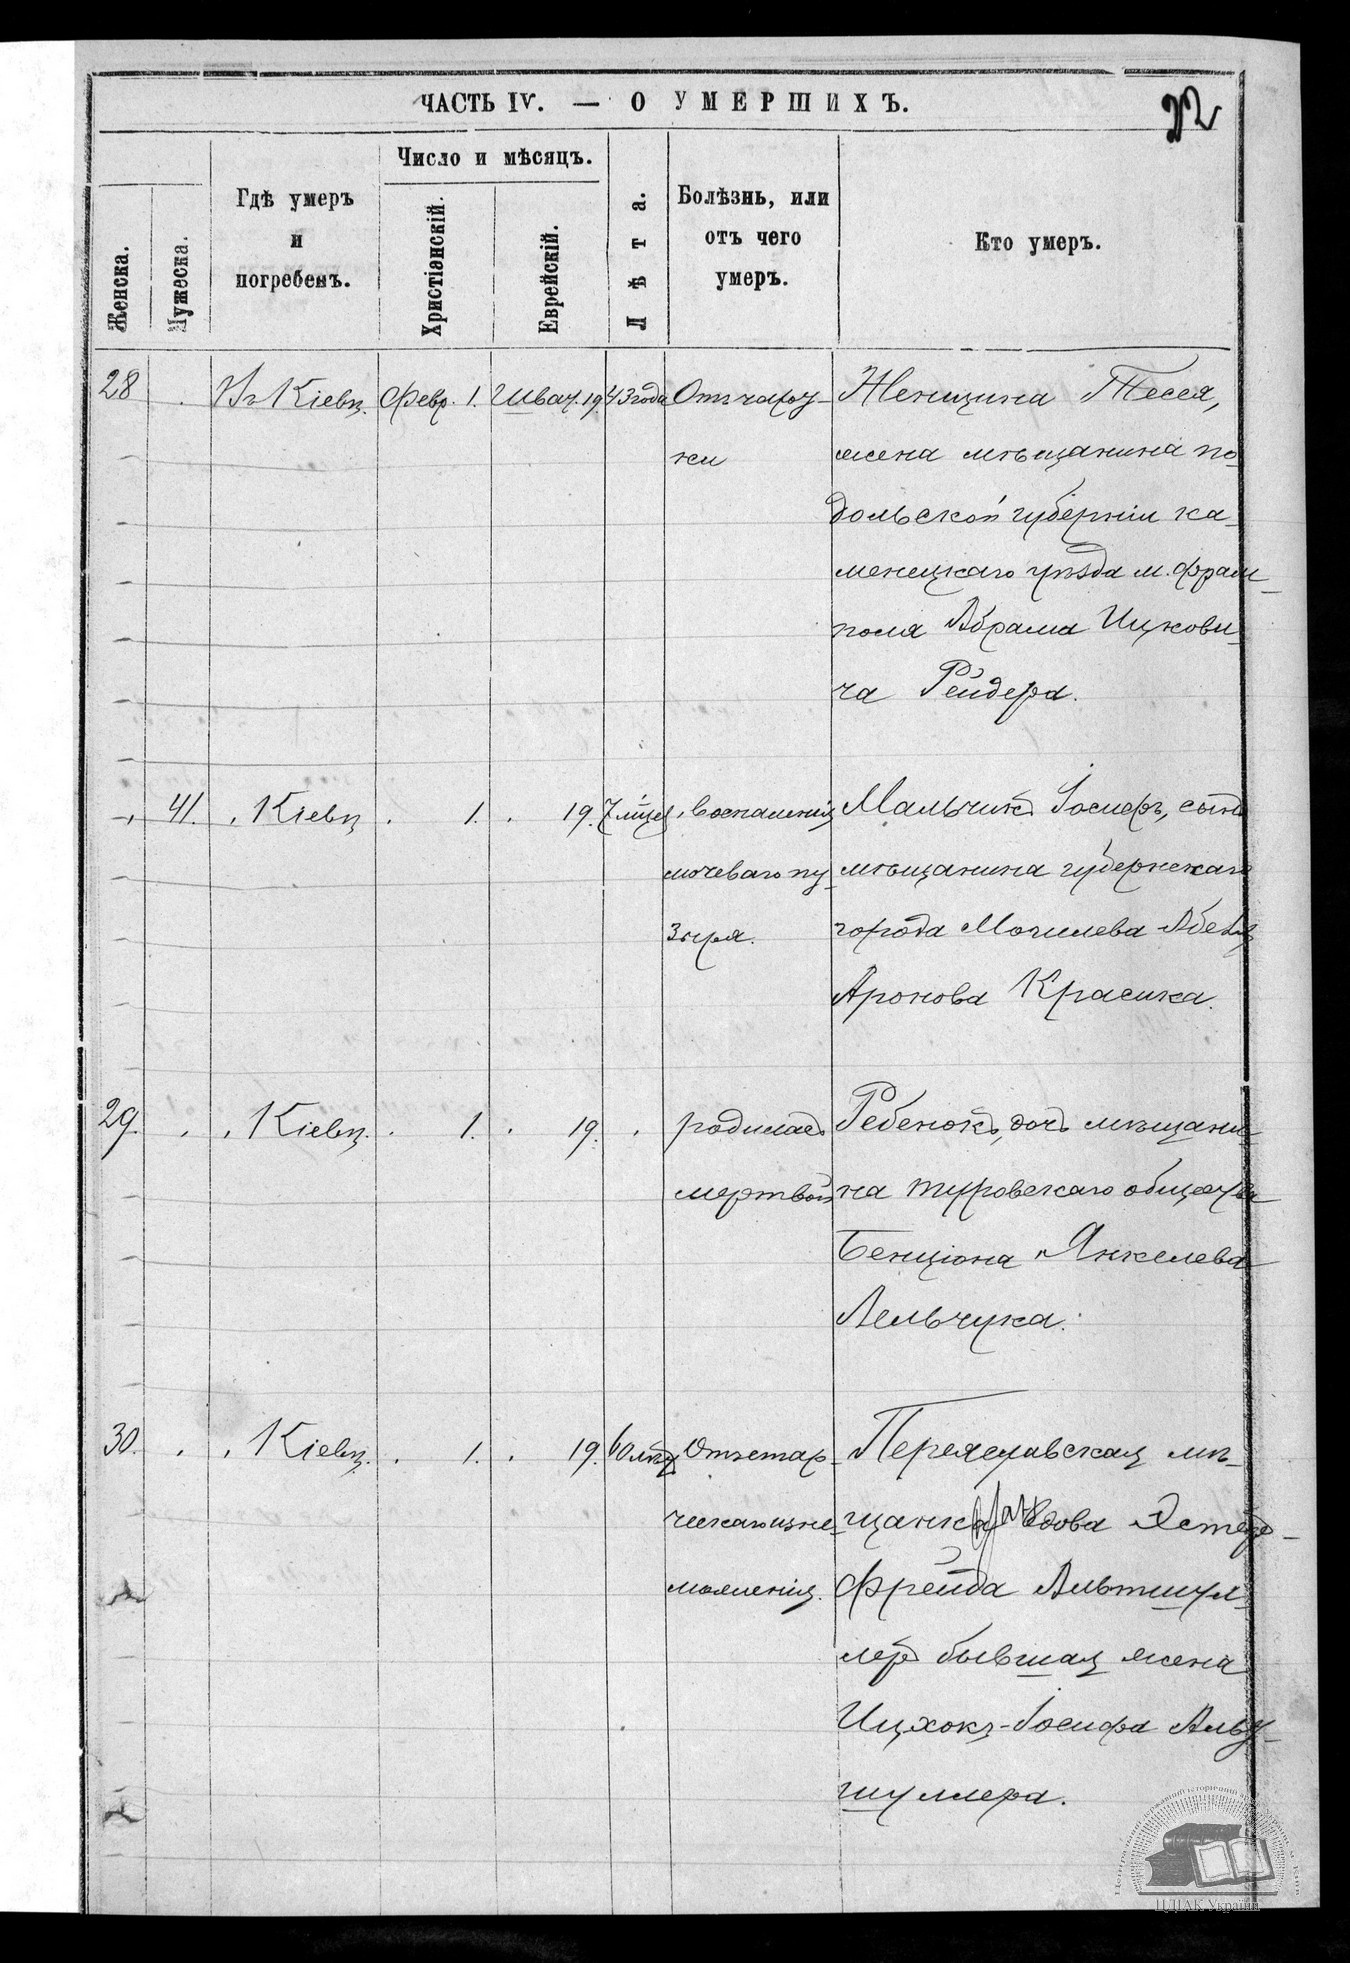 ЧАСТЬ IV. — О УМЕРШИХЪ.
22
Женска.
Мужеска.
Гдѣ умеръ
и
погребенъ.
Число и мѣсяцъ.
Христіанскій.
Еврейскій.
Лѣта.
Болѣзнь, или
отъ чего
умеръ.
Кто умеръ.
28 Въ Кіевѣ. Февр. 1. Шват. 19. 43 года Отъ чахот-
ки
Женщина Тесея,
жена мѣщанина по-
дольской губерніи ка-
менецкаго уѣзда м. Фрам-
поля Абрама Ицкови-
ча Рейдера.
41. Кіевѣ 1. 19. 7 мѣсц. воспаленія
мочеваго пу-
зыря.
Мальчикъ Іосифъ, сынъ
мѣщанина губернскаго
города Могилева Абеля
Аронова Красика.
29. Кіевѣ. 1. 19. родилась
мертвой
Ребенокъ, дочь мѣщани-
на туровскаго общества
Бенціона Янкелева
Лельчука.
30. Кіевѣ. 1. 19. 60 лѣтъ Отъ стар-
ческаго изне-
моженія.
Переяславская мѣ-
щанка вдова Эстеръ-
Фрейда Альтшул-
леръ бывшая жена
Ицхокъ-Іосифа Альт-
шуллера.
ЦДІАК України